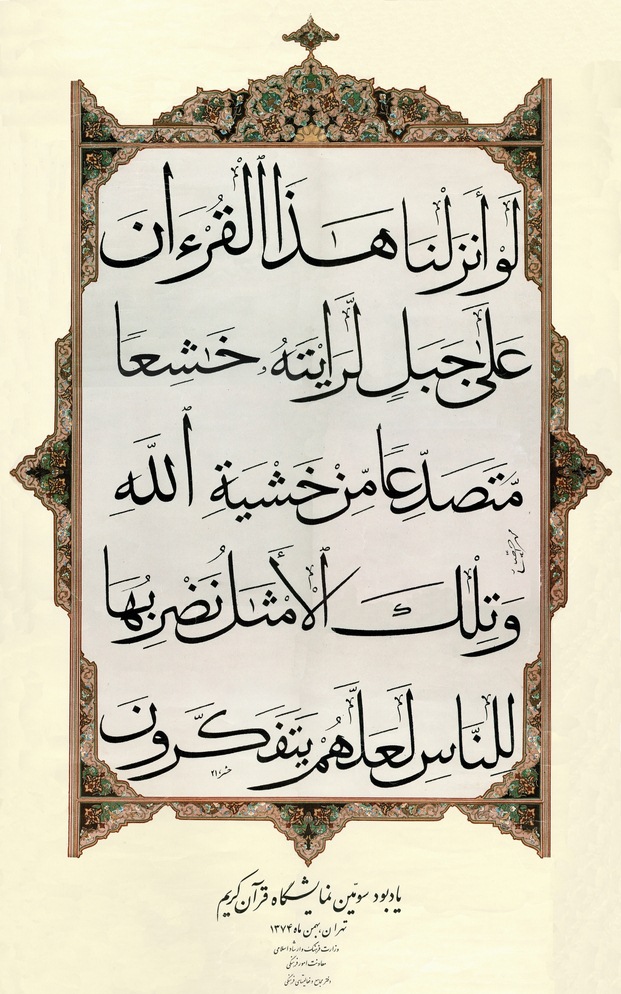 لَوْ أَنزَلْنَا هَـٰذَا ٱلْقُرْءَانَ
عَلَىٰ جَبَلٍ لَّرَأَيْتَهُۥ خَـٰشِعًا
مُّتَصَدِّعًا مِّنْ خَشْيَةِ ٱللَّهِ
وَتِلْكَ ٱلْأَمْثَـٰلُ نَضْرِبُهَا
لِلنَّاسِ لَعَلَّهُمْ يَتَفَكَّرُونَ
حشر، ٢١
یادبود سومّین نمایشگاه قرآن کریم
تهران، بهمن ماه ۱۳۷۴
وزارت فرهنگ و ارشاد اسلامی
معاونت امور فرهنگی
دفتر مجامع و فعالیتهای فرهنگی